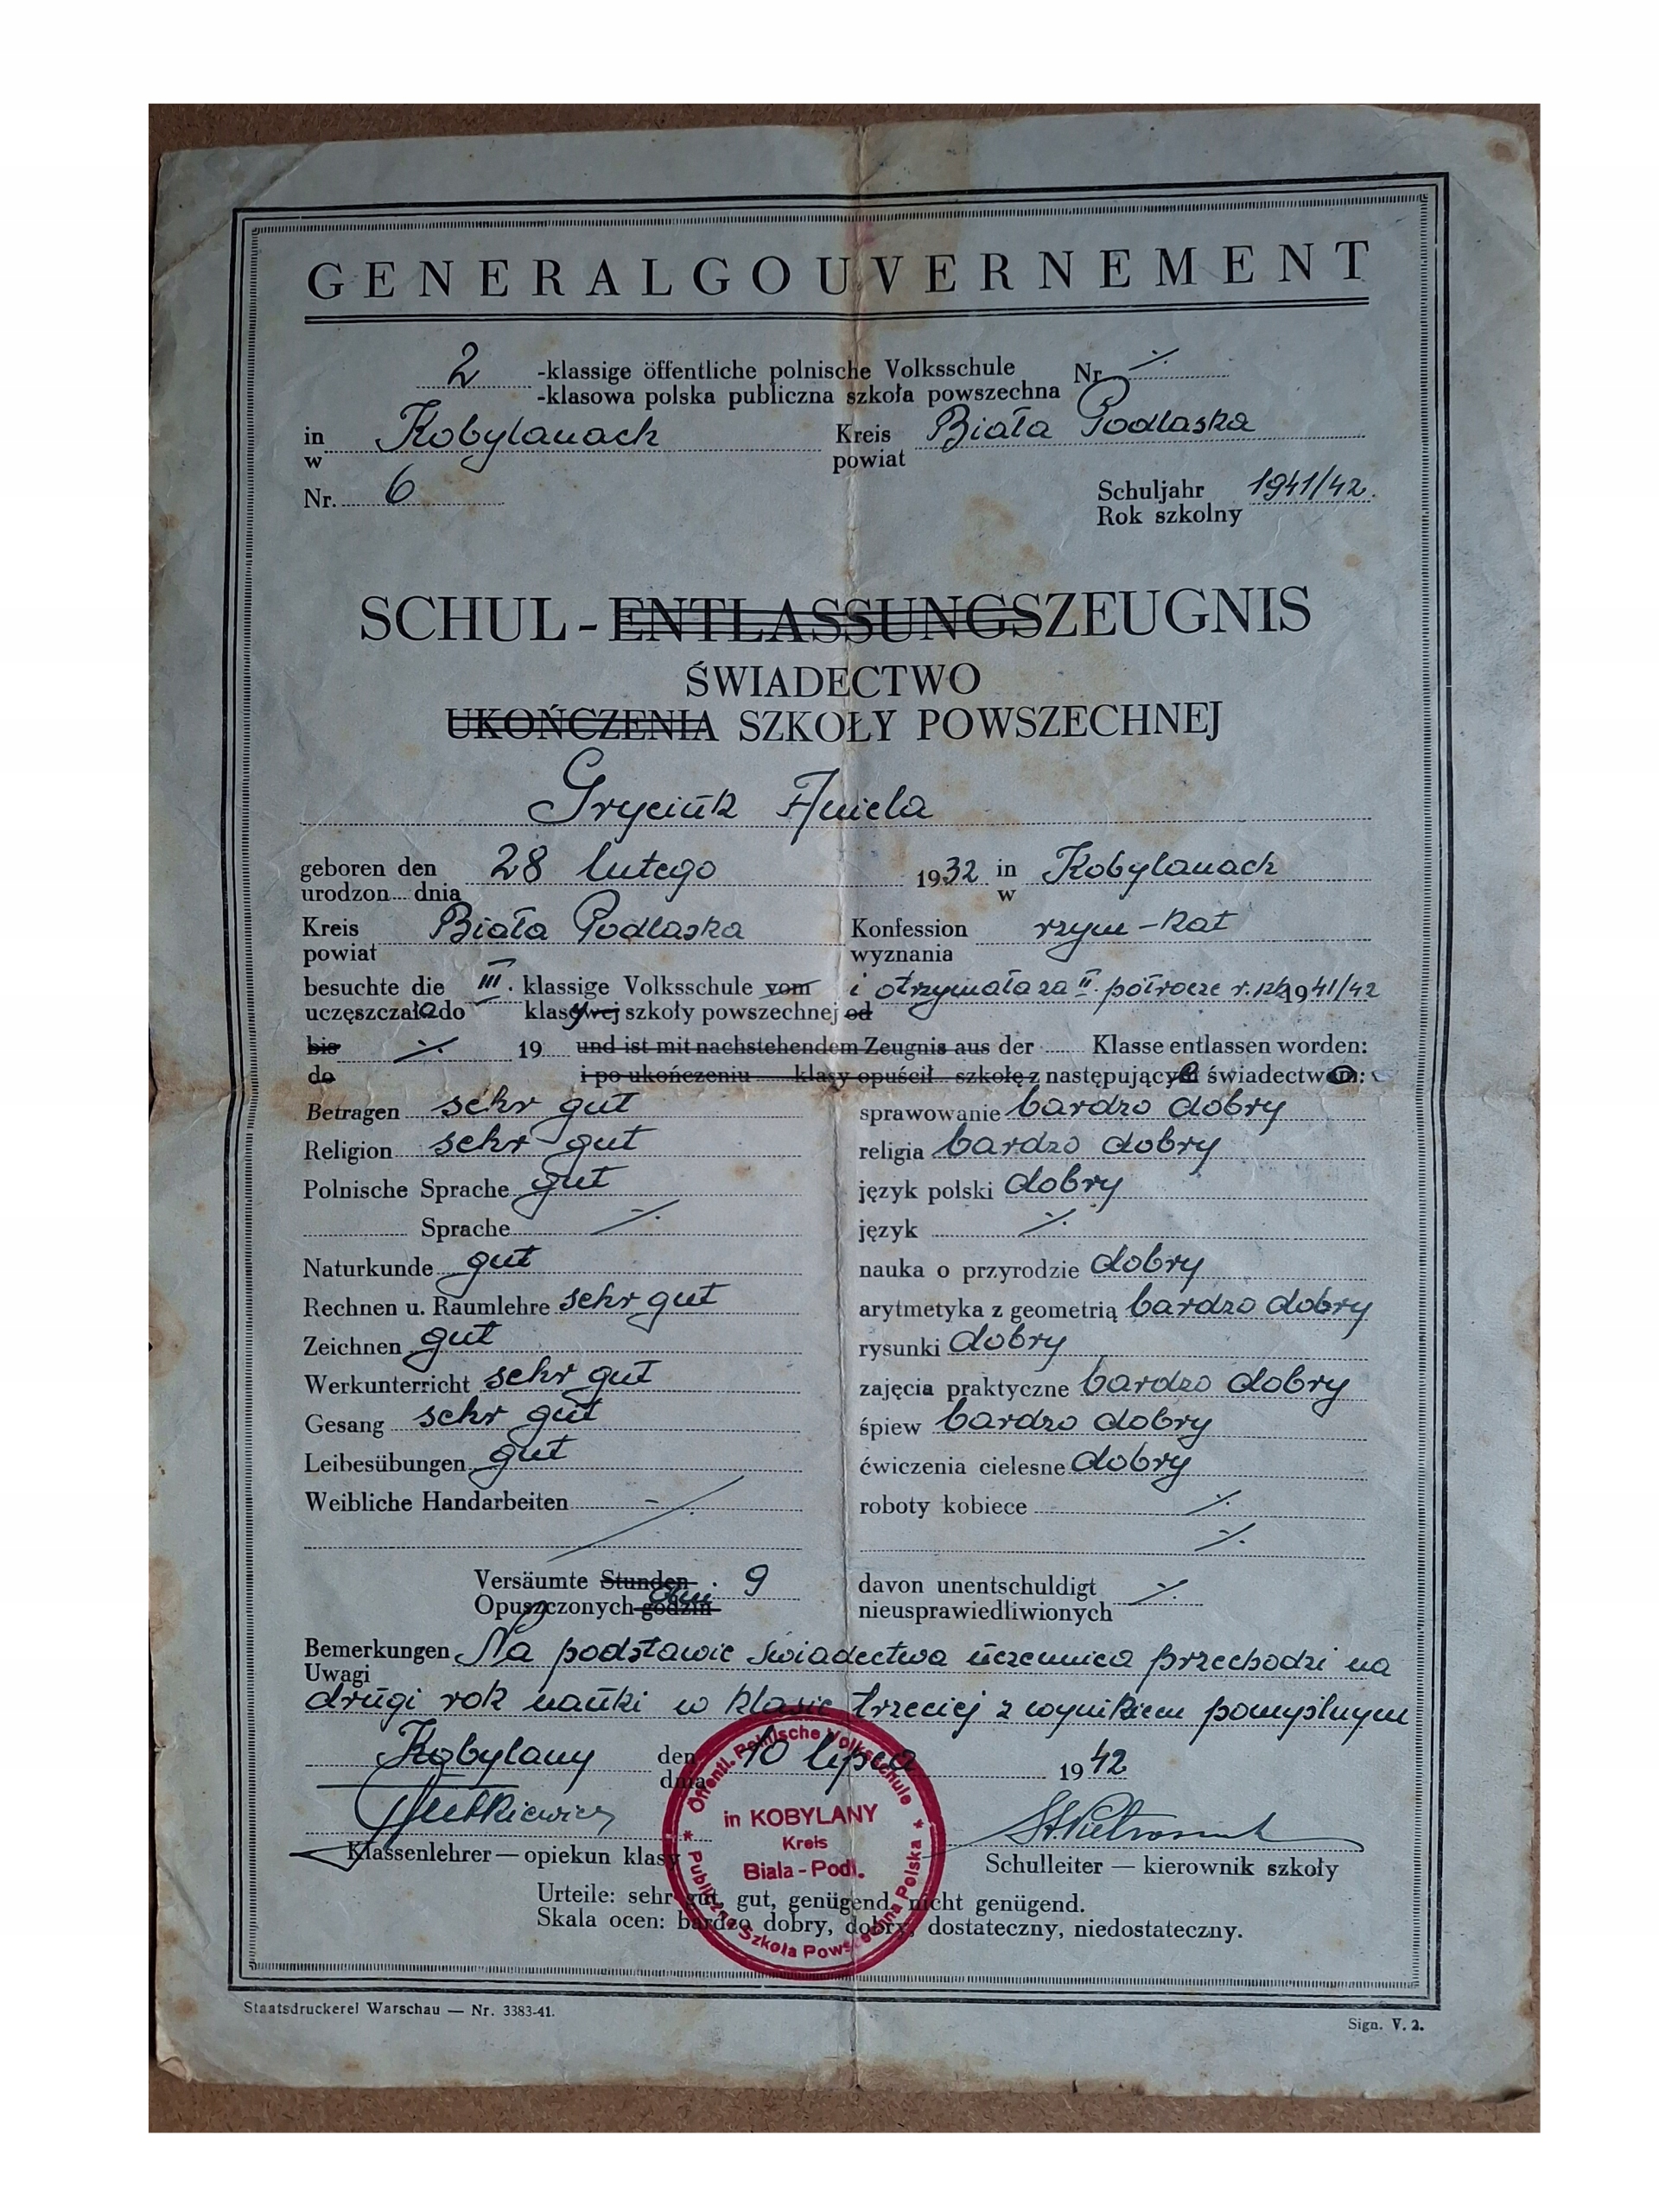 GENERALGOUVERNEMENT
2 -klassige öffentliche polnische Volksschule Nr. ·/·
-klasowa polska publiczna szkoła powszechna
in Kobylanach Kreis Biała Podlaska
w powiat
Nr. 6 Schuljahr 1941/42.
Rok szkolny
SCHUL-ENTLASSUNGSZEUGNIS
ŚWIADECTWO
UKOŃCZENIA SZKOŁY POWSZECHNEJ
Gryciuk Aniela
geboren den 28 lutego 1932 in Kobylanach
urodzon... dnia w
Kreis Biała Podlaska Konfession rzym-kat
powiat wyznania
besuchte die III. klassige Volksschule vom i otrzymała za II. półrocze r. szk. 1941/42
uczęszczała do klasy szkoły powszechnej od
bis ·/· 19.... und ist mit nachstehendem Zeugnis aus der ...... Klasse entlassen worden:
do i po ukończeniu ...... klasy opuścił... szkołę z następujące świadectwo:
Betragen sehr gut sprawowanie bardzo dobry
Religion sehr gut religia bardzo dobry
Polnische Sprache gut język polski dobry
Sprache ·/· język ·/·
Naturkunde gut nauka o przyrodzie dobry
Rechnen u. Raumlehre sehr gut arytmetyka z geometrią bardzo dobry
Zeichnen gut rysunki dobry
Werkunterricht sehr gut zajęcia praktyczne bardzo dobry
Gesang sehr gut śpiew bardzo dobry
Leibesübungen gut ćwiczenia cielesne dobry
Weibliche Handarbeiten ·/· roboty kobiece ·/·
·/·
Versäumte Stunden 9 davon unentschuldigt ·/·
Opuszczonych godzin dni nieusprawiedliwionych
Bemerkungen Na podstawie świadectwa uczennica przechodzi na
Uwagi
drugi rok nauki w klasie trzeciej z wynikiem pomyślnym
Kobylany den 10 lipca 1942
dnia
Öffentl. Polnische Volksschule
in KOBYLANY
Kreis
Biala-Podl.
* Publiczna Szkoła Powszechna Polska *
Klassenlehrer — opiekun klasy Schulleiter — kierownik szkoły
Urteile: sehr gut, gut, genügend, nicht genügend.
Skala ocen: bardzo dobry, dobry, dostateczny, niedostateczny.
Staatsdruckerei Warschau — Nr. 3383-41.
Sign. V. 2.